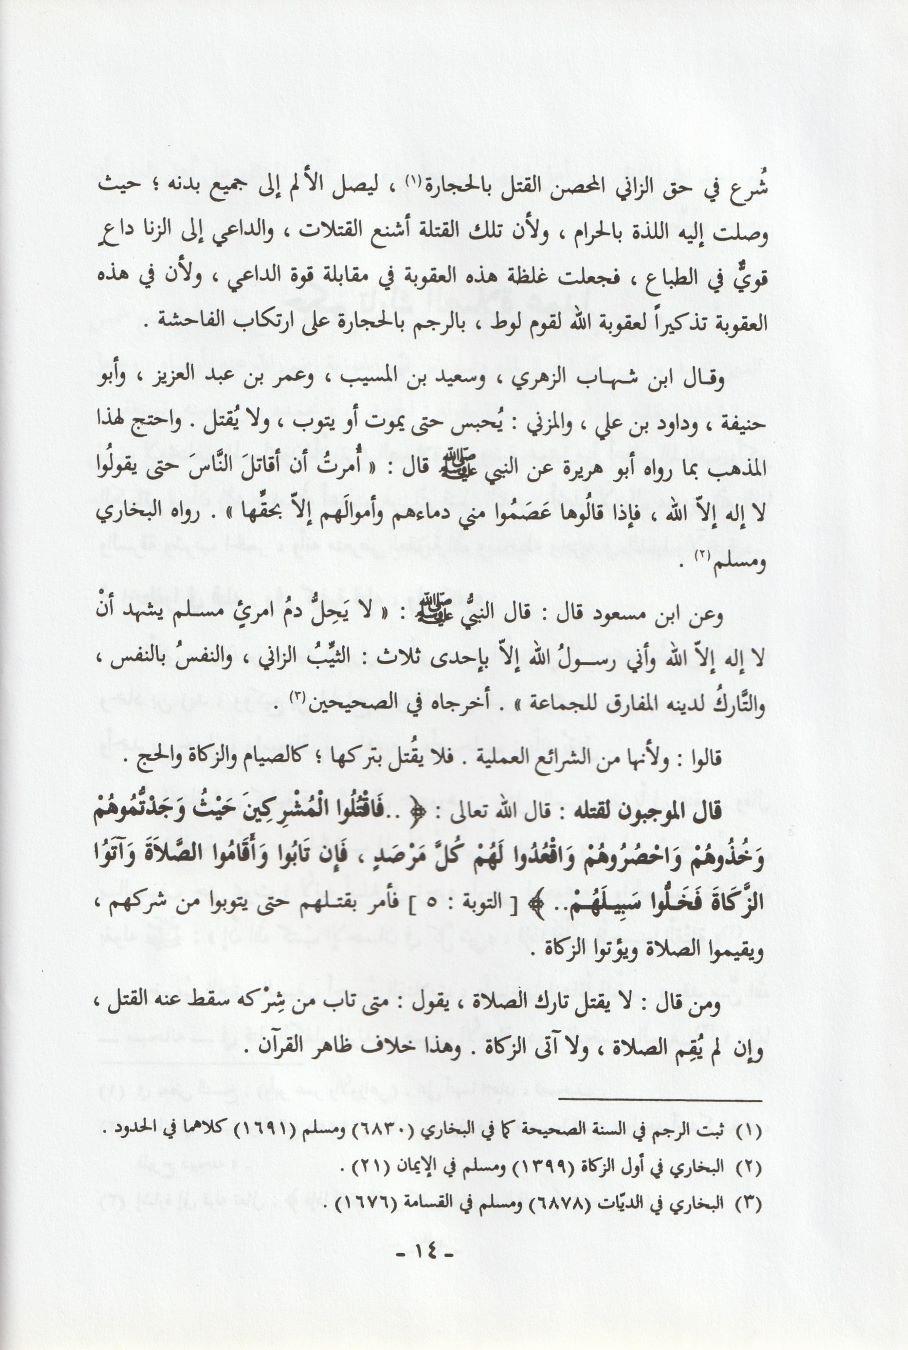 شُرع في حق الزاني المحصن القتل بالحجارة(١) ، ليصل الألم إلى جميع بدنه ؛ حيث
وصلت إليه اللذة بالحرام ، ولأن تلك القتلة أشنع القتلات ، والداعي إلى الزنا داعٍ
قويٌّ في الطباع ، فجعلت غلظة هذه العقوبة في مقابلة قوة الداعي ، ولأن في هذه
العقوبة تذكيراً لعقوبة الله لقوم لوط ، بالرجم بالحجارة على ارتكاب الفاحشة .
وقـال ابن شـهـاب الزهري ، وسعيد بن المسيب ، وعمر بن عبد العزيز ، وأبو
حنيفة ، وداود بن علي ، والمزني : يُحبس حتى يموت أو يتوب ، ولا يُقتل . واحتج لهذا
المذهب بما رواه أبو هريرة عن النبي ﷺ قال : « أُمرتُ أن أقاتلَ النَّاسَ حتى يقولُوا
لا إله إلاّ الله ، فإذا قالُوها عَصَمُوا مني دماءهم وأموالَهم إلاّ بحقِّها » . رواه البخاري
ومسلم(٢) .
وعن ابن مسعود قال : قال النبيُّ ﷺ : « لا يَحِلُّ دمُ امرئٍ مسـلم يشهد أنْ
لا إله إلاّ الله وأني رسـولُ الله إلاّ بإحدى ثلاث : الثيِّبُ الزاني ، والنفسُ بالنفس ،
والتَّاركُ لدينه المفارق للجماعة » . أخرجاه في الصحيحين(٣) .
قالوا : ولأنها من الشرائع العملية . فلا يقُتل بتركها ؛ كالصيام والزكاة والحج .
قال الموجبون لقتله : قال الله تعالى : ﴿ ..فَاقْتُلُوا الْمُشْرِكِينَ حَيْثُ وَجَدْتُّمُوهُمْ
وَخُذُوهُمْ وَاحْصُرُوهُمْ وَاقْعُدُوا لَهُمْ كُلَّ مَرْصَدٍ ، فَإِن تَابُوا وَأَقَامُوا الصَّلاَةَ وَآتَوُا
الزَّكَاةَ فَخَلُّوا سَبِيـلَهُـمْ.. ﴾ [ التوبة : ٥ ] فأمر بقتـلهم حتى يتوبوا من شركهم ،
ويقيموا الصلاة ويؤتوا الزكاة .
ومن قال : لا يقتل تارك الصلاة ، يقول : متى تاب من شِرْكه سقط عنه القتل ،
وإن لم يُقِم الصلاة ، ولا آتى الزكاة . وهذا خلاف ظاهر القرآن .
(١) ثبت الرجم في السنة الصحيحة كما في البخاري (٦٨٣٠) ومسلم (١٦٩١) كلاهما في الحدود .
(٢) البخاري في أول الزكاة (١٣٩٩) ومسلم في الإيمان (٢١) .
(٣) البخاري في الديّات (٦٨٧٨) ومسلم في القسامة (١٦٧٦) .
- ١٤ -